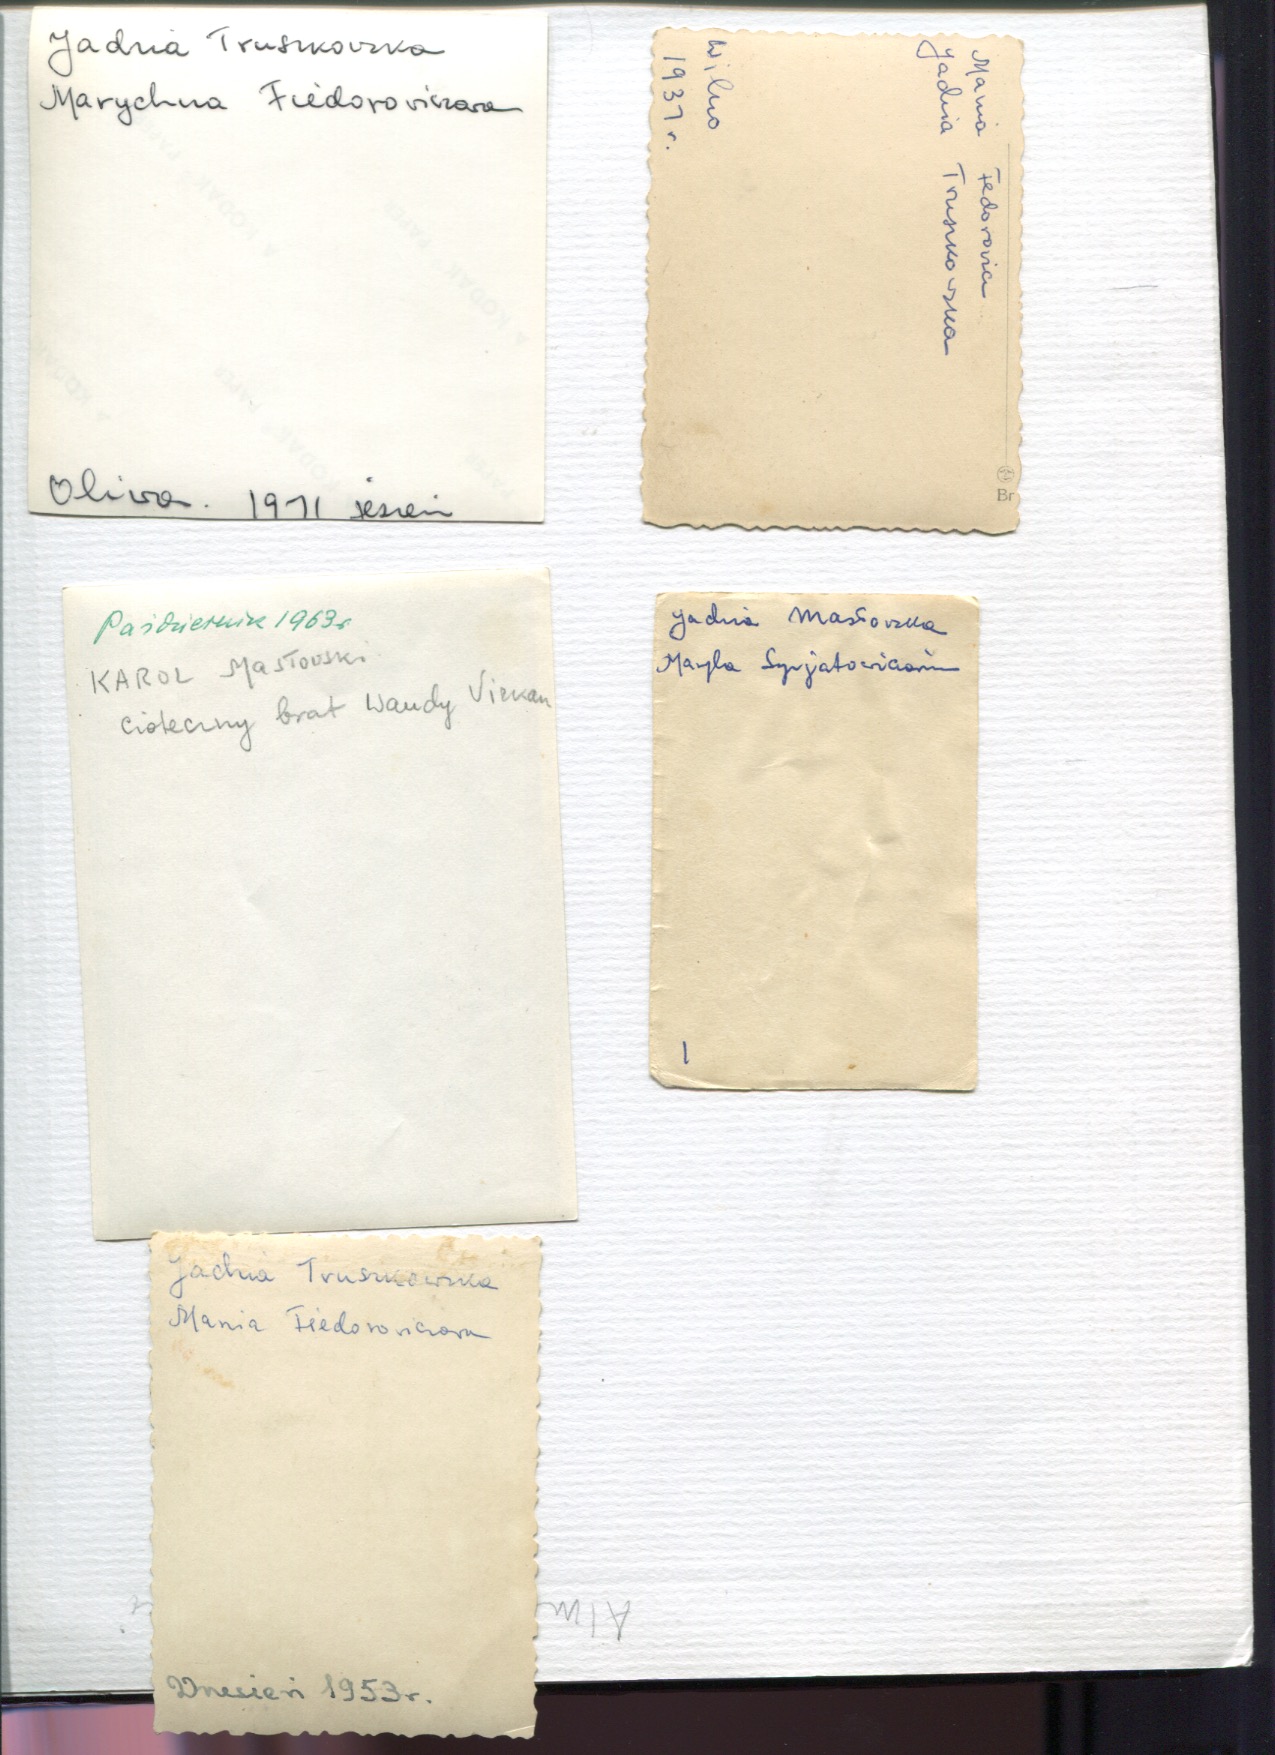 Jadzia Truszkowska
Marychna Fiedorowiczowa
Oliwa. 1971 jesień
Mania Fedorowicz
Jadzia Truszkowska
Wilno
1937 r.
Br
Październik 1963r
KAROL Masłowski
cioteczny brat Wandy
Jadzia Masłowska
Maryla
1
Jadzia Truszkowska
Mania Fiedorowiczowa
Wrzesień 1953r.